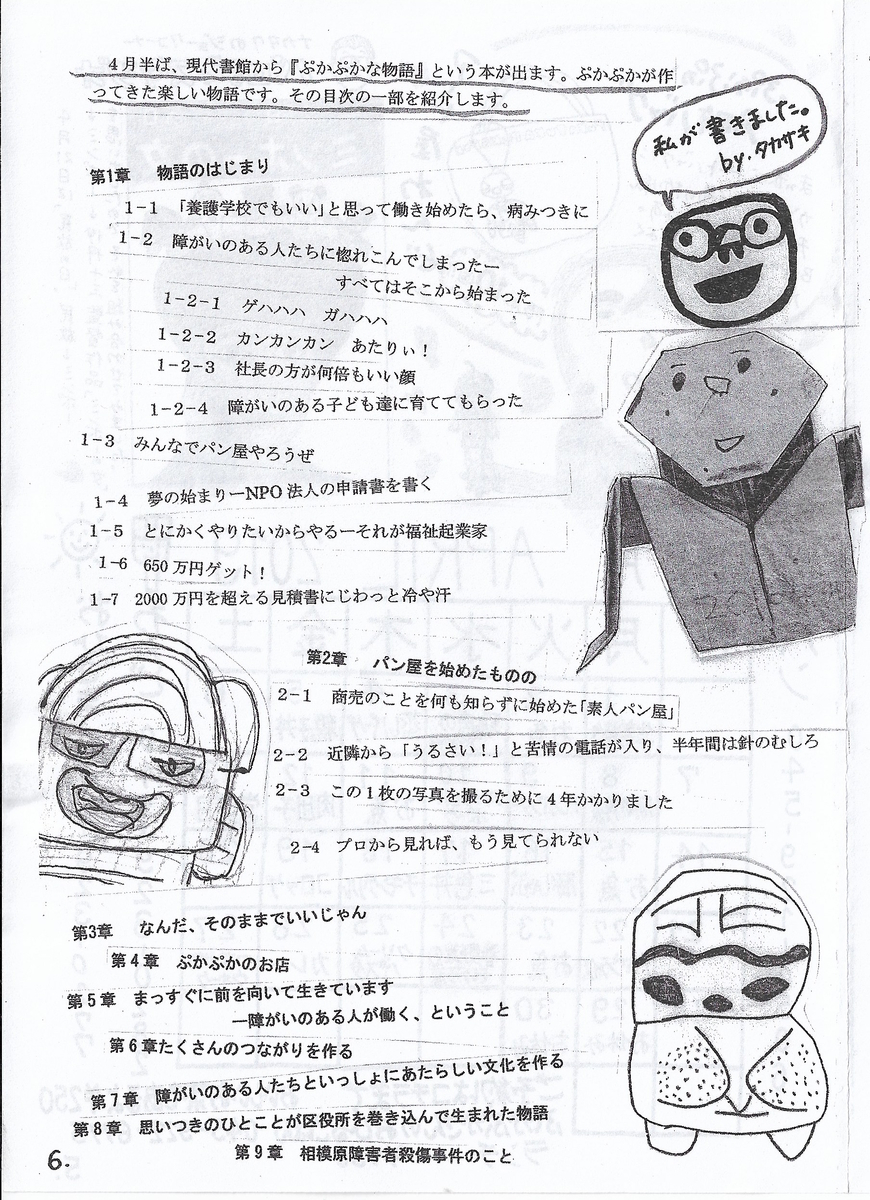 4月半ば、現代書館から『ぷかぷかな物語』という本が出ます。ぷかぷかが作
ってきた楽しい物語です。その目次の一部を紹介します。
私が書きました。
by.タカサキ
第1章 物語のはじまり
1-1 「養護学校でもいい」と思って働き始めたら、病みつきに
1-2 障がいのある人たちに惚れこんでしまったー
すべてはそこから始まった
1-2-1 ゲハハハ ガハハハ
1-2-2 カンカンカン あたりぃ!
1-2-3 社長の方が何倍もいい顔
1-2-4 障がいのある子ども達に育ててもらった
1-3 みんなでパン屋やろうぜ
1-4 夢の始まりーNPO法人の申請書を書く
1-5 とにかくやりたいからやるーそれが福祉起業家
1-6 650万円ゲット!
1-7 2000万円を超える見積書にじわっと冷や汗
第2章 パン屋を始めたものの
2-1 商売のことを何も知らずに始めた「素人パン屋」
2-2 近隣から「うるさい!」と苦情の電話が入り、半年間は針のむしろ
2-3 この1枚の写真を撮るために4年かかりました
2-4 プロから見れば、もう見てられない
第3章 なんだ、そのままでいいじゃん
第4章 ぷかぷかのお店
第5章 まっすぐに前を向いて生きています
―障がいのある人が働く、ということ
第6章たくさんのつながりを作る
第7章 障がいのある人たちといっしょにあたらしい文化を作る
第8章 思いつきのひとことが区役所を巻き込んで生まれた物語
第9章 相模原障害者殺傷事件のこと
6.